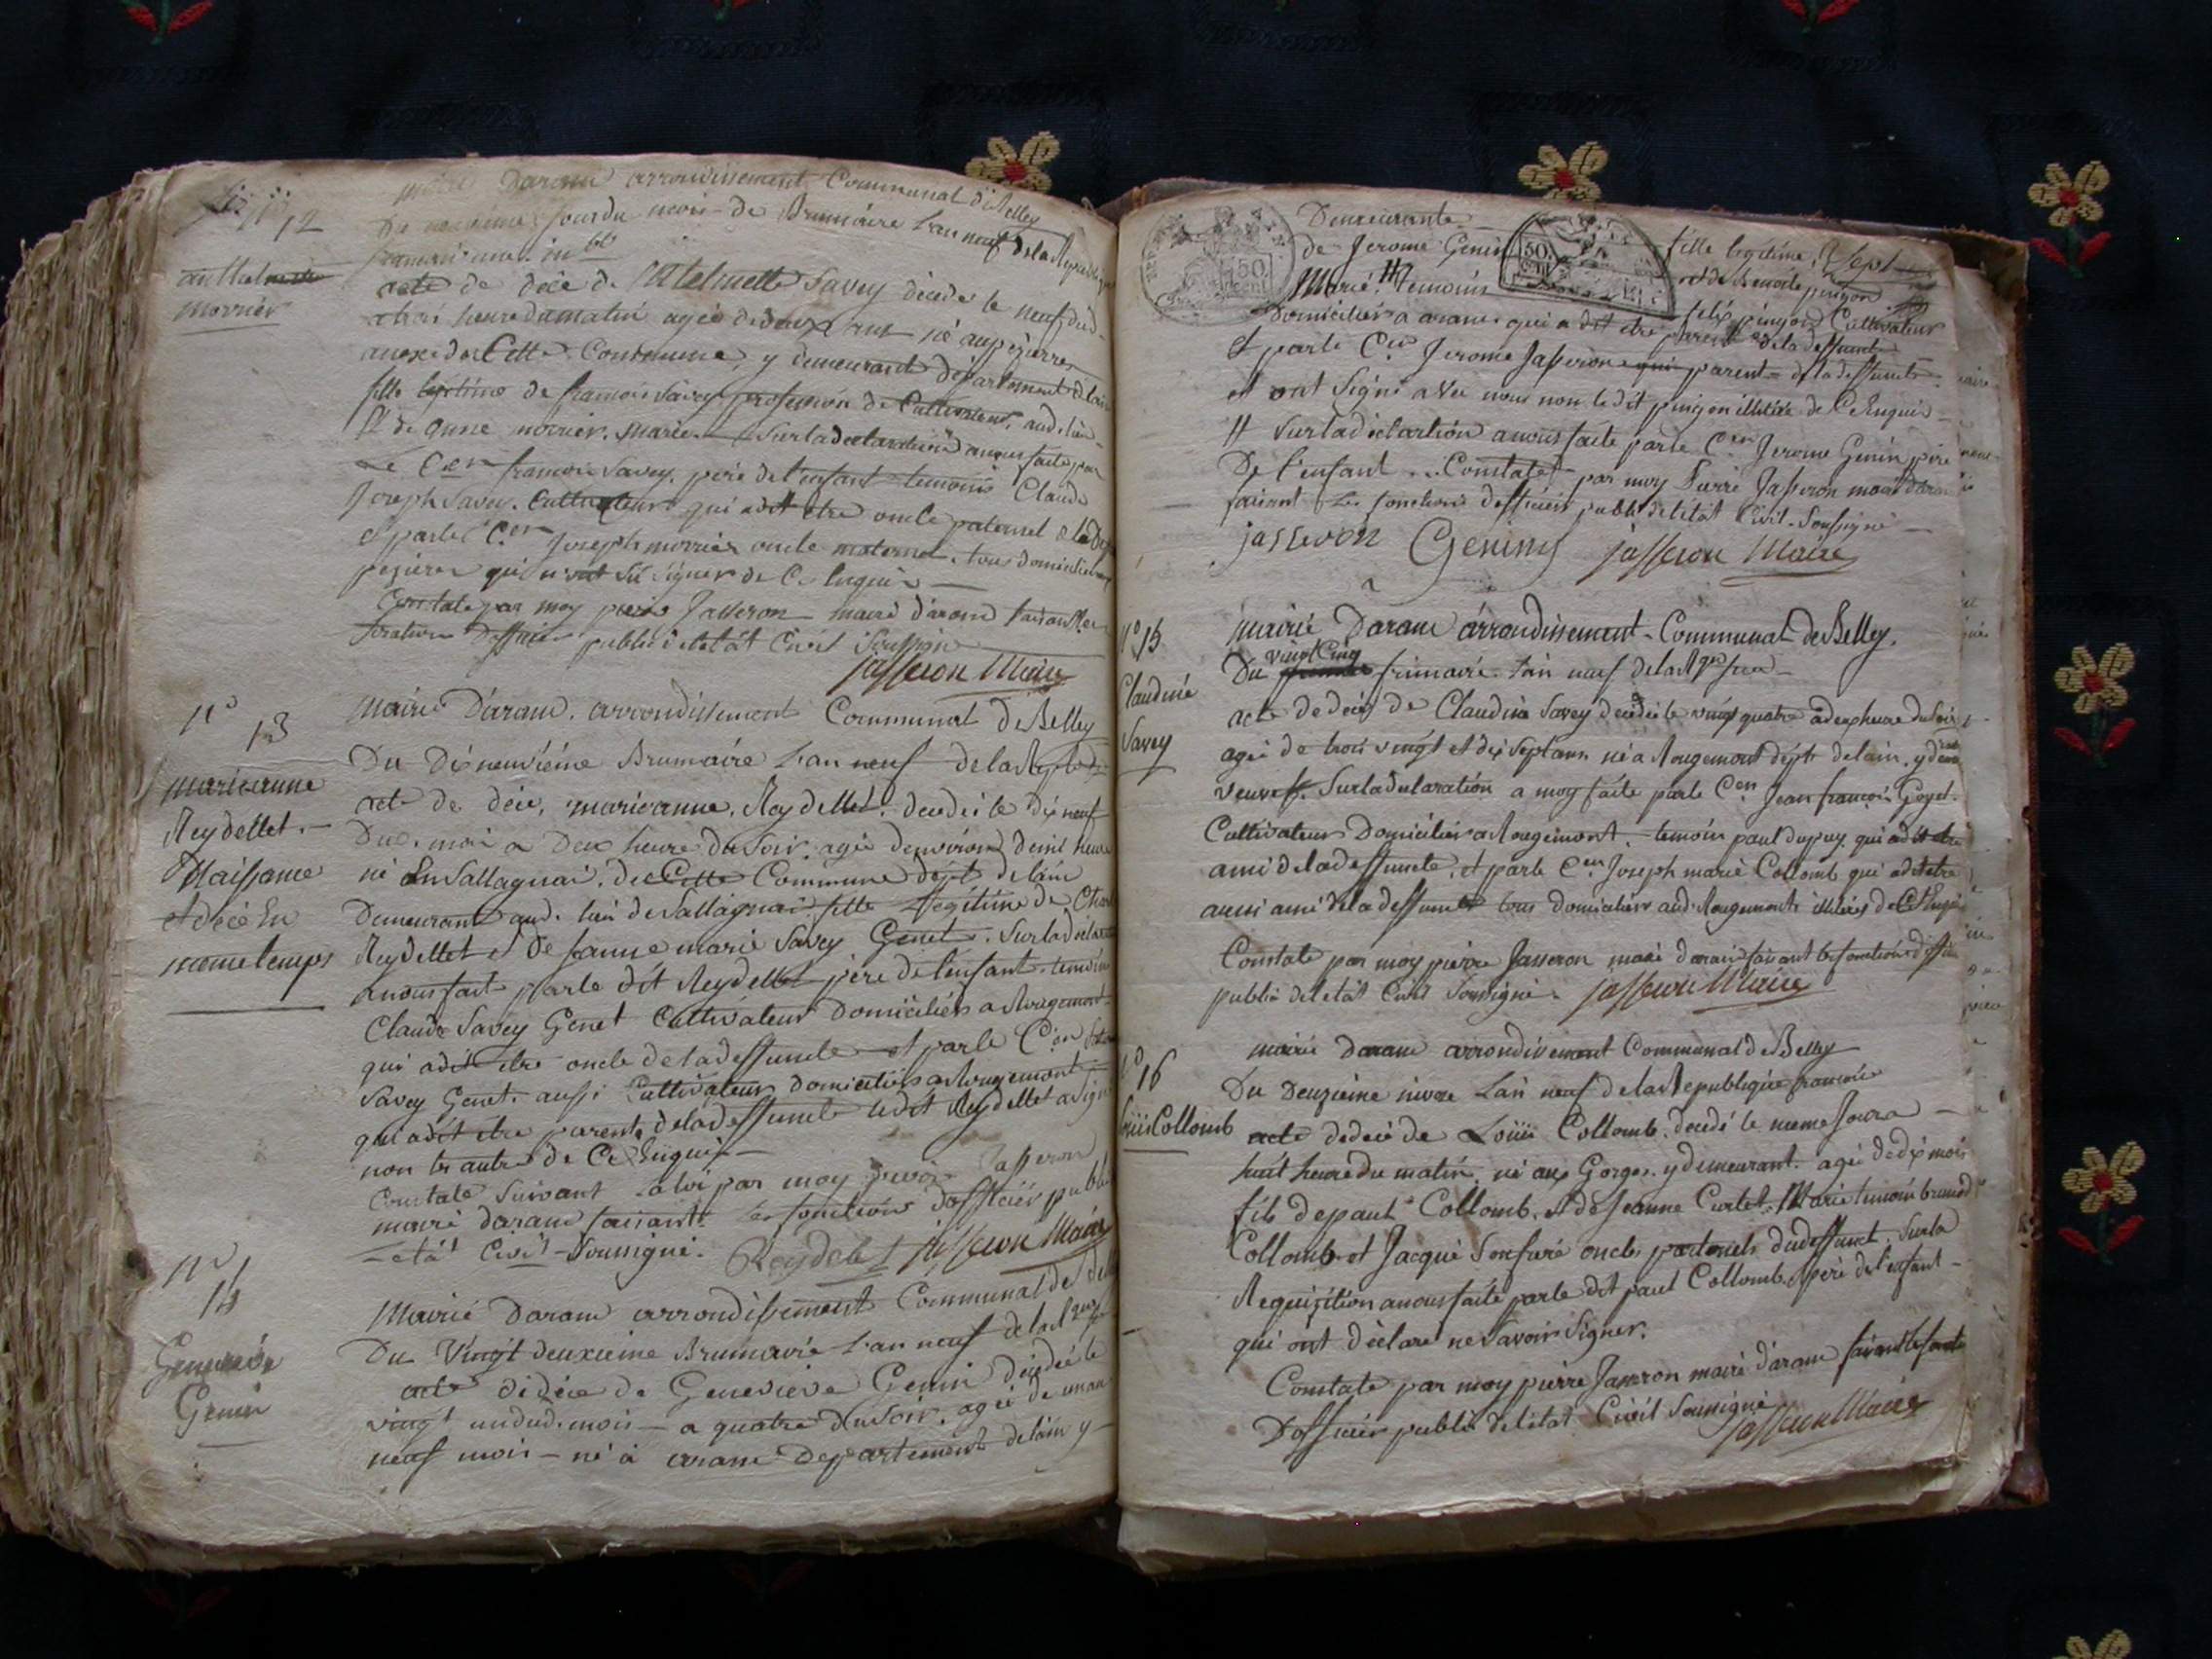 12
mairie Daranc arrondissement Communal de Belley
Du neuvième jour du mois de Brumaire L'an neuf de la Republique
acte de décé de Savey décédé le neuf dud.
a trois heure du matin agée de deux ans né aux pézieres
anexe de Cette Commune, y demeurant département delain
fille legitime de francois Savey profession de Cultivateur, aud. lieu
Et de anne morrier. mariés Sur la declaration a nous faite par
Le Cen francois Savey. père de l'enfant temoins Claude
Joseph Savey. Cultivateur qui a dit etre oncle paternel
et par le C.en Joseph morrier oncle maternel. tous domiciliés
pezieres qui n'ont Sù Signer de Ce Enquis
Constate par moy pierre Jasseron maire d'aranc faisant les
fonctions D'officier public de letât Civil Soussigné
jasseron Maire
morrier
N° 13
marieanne
Reydellet.
Naissance
et décé En
meme temps
Mairie D'aranc. arrondissement Communal de Belley
Du Dix neuvième Brumaire L'an neuf de la
acte de décé, marieanne. Reydellet. decedée le dix neuf
Dud. mois a Deux heure du Soir. agée denviron demi heure
né En Sallagnai. de Cette Commune dépt delain
Demeurant aud. lieu de Sallagnai. fille Legitime de
Reydellet et de Jeanne marie Savey Genet. Sur la
a nous fait par le dit Reydellet père de l'enfant. temoin
Claude Savey Genet Cultivateur Domiciliés a Rougemont
qui a dit etre oncle de la deffuncte et par le C.en
Savey Genet. aussi Cultivateur domiciliés a Rougemont
qui a dit etre parents de la deffuncte le dit Reydellet a Signé
non les autre de Ce Enquis
Constate Suivant La loi par moy pierre Jasseron
maire daranc faisant les fonctions d'officier public
etât Civil Soussigné. Reydelet jasseron Maire
N° 14
Genevieve
Genin
Mairie Daranc arrondissement Communal de
Du Vingt deuxieme Brumaire L'an neuf de la
acte de décé de Genevieve Genin décédée le
vingt un dud. mois a quatre du Soir. agée de un an
neuf mois né à aranc Departement delain y
Demeurante fille legitime
de Jerome Genin et de Benoite pinjon
Marié. # temoins felix pinjon Cultivateur
Domiciliés a aranc qui a dit etre parent de la deffuncte
Et par le Cen Jerome Jasseron parent de la deffuncte
et ont Signé avec nous non le dit pinjon illitéré de Ce Enquis
# Sur la déclartión a nous faite par le C.en Jerome Genin père
De l'enfant ... Constaté par moy Pierre Jasseron maire daranc
faisant Les fonctions d'officier public de létât Civil Soussigné
jasseron Genin jasseron Maire
N° 15
Claudine
Savey
Mairie Daranc árrondissement Communal de Belley.
Du vingt Cinq frimaire. L'an neuf de la
acte de décé de Claudine Savey décédée le vingt quatre a deux heure du Soir
agée de trois vingt et dix Sept ans. né a Rougemont dépt delain. y
veuve. Sur la declaration a moy faite par le C.en Jean francois Goyet.
Cultivateur Domiciliés a Rougemont. temoin paul dupuy. qui a dit etre
ami de la deffuncte. et par le C.en Joseph marie Collomb qui a dit etre
aussi ami de la deffuncte tous domiciliés aud. Rougemont illitérés de Ce Enquis
Constate par moy pierre Jasseron maire daranc faisant les fonctions
public de letât Civil Soussigné. jasseron Maire
N° 16
Louis Collomb
mairie daranc arrondissement Communal de Belley
Du Deuzieme nivose L'an neuf de la Republique francaise
acte de décé de Louis Collomb. decédé le meme Jour a
huit heure du matin. né aux Gorges. y demeurant. agé de dix mois
fils de paul Collomb. et de Jeanne Curtet. Marié temoin
Collomb et Jacque Son frere oncles paternels du deffunct. Sur la
Requizition a nous faite par le dit paul Collomb. père de l'enfant
qui ont déclaré ne Savoir Signer.
Constate par moy pierre Jasseron maire d'aranc faisant les
D'officier public de létat Civil Soussigné
jasseron Maire